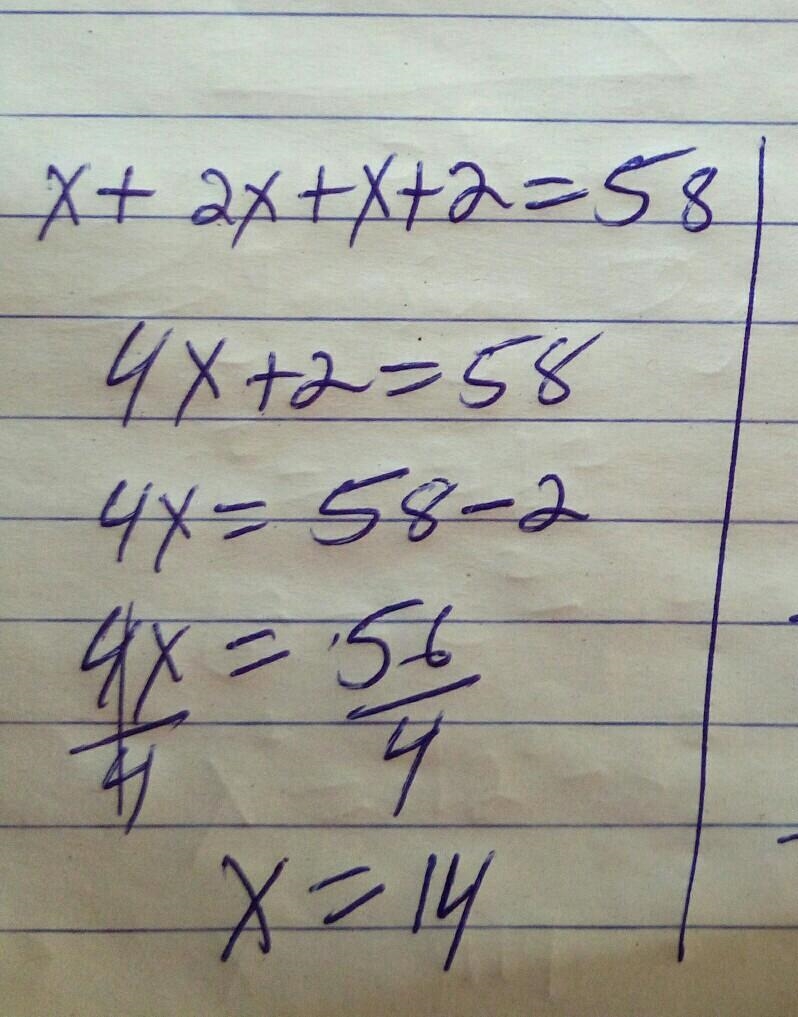 x + 2x + x + 2 = 58
4x + 2 = 58
4x = 58 - 2
4x/4 = 56/4
x = 14